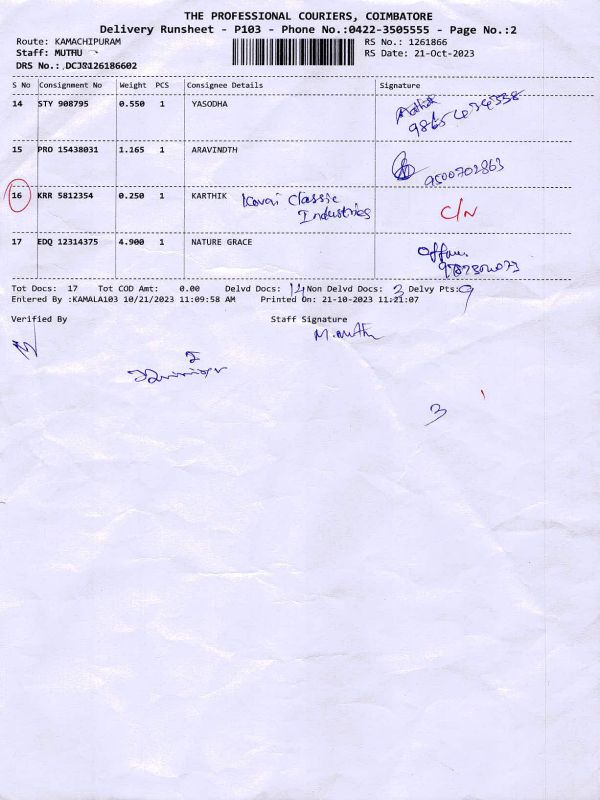 THE PROFESSIONAL COURIERS, COIMBATORE
Delivery Runsheet - P103 - Phone No.:0422-3505555 - Page No.:2
Route: KAMACHIPURAM RS No.: 1261866
Staff: MUTHU RS Date: 21-Oct-2023
DRS No.: DCJS126186602
S No Consignment No Weight PCS Consignee Details Signature
14 STY 908795 0.550 1 YASODHA
15 PRO 15438031 1.165 1 ARAVINDTH
9500702863
16 KRR 5812354 0.250 1 KARTHIK Kovai Classic
Industries C/N
17 EDQ 12314375 4.900 1 NATURE GRACE
Tot Docs: 17 Tot COD Amt: 0.00 Delvd Docs: 14 Non Delvd Docs: 3 Delvy Pts: 9
Entered By :KAMALA103 10/21/2023 11:09:58 AM Printed On: 21-10-2023 11:21:07
Verified By Staff Signature
M. Muthu
3